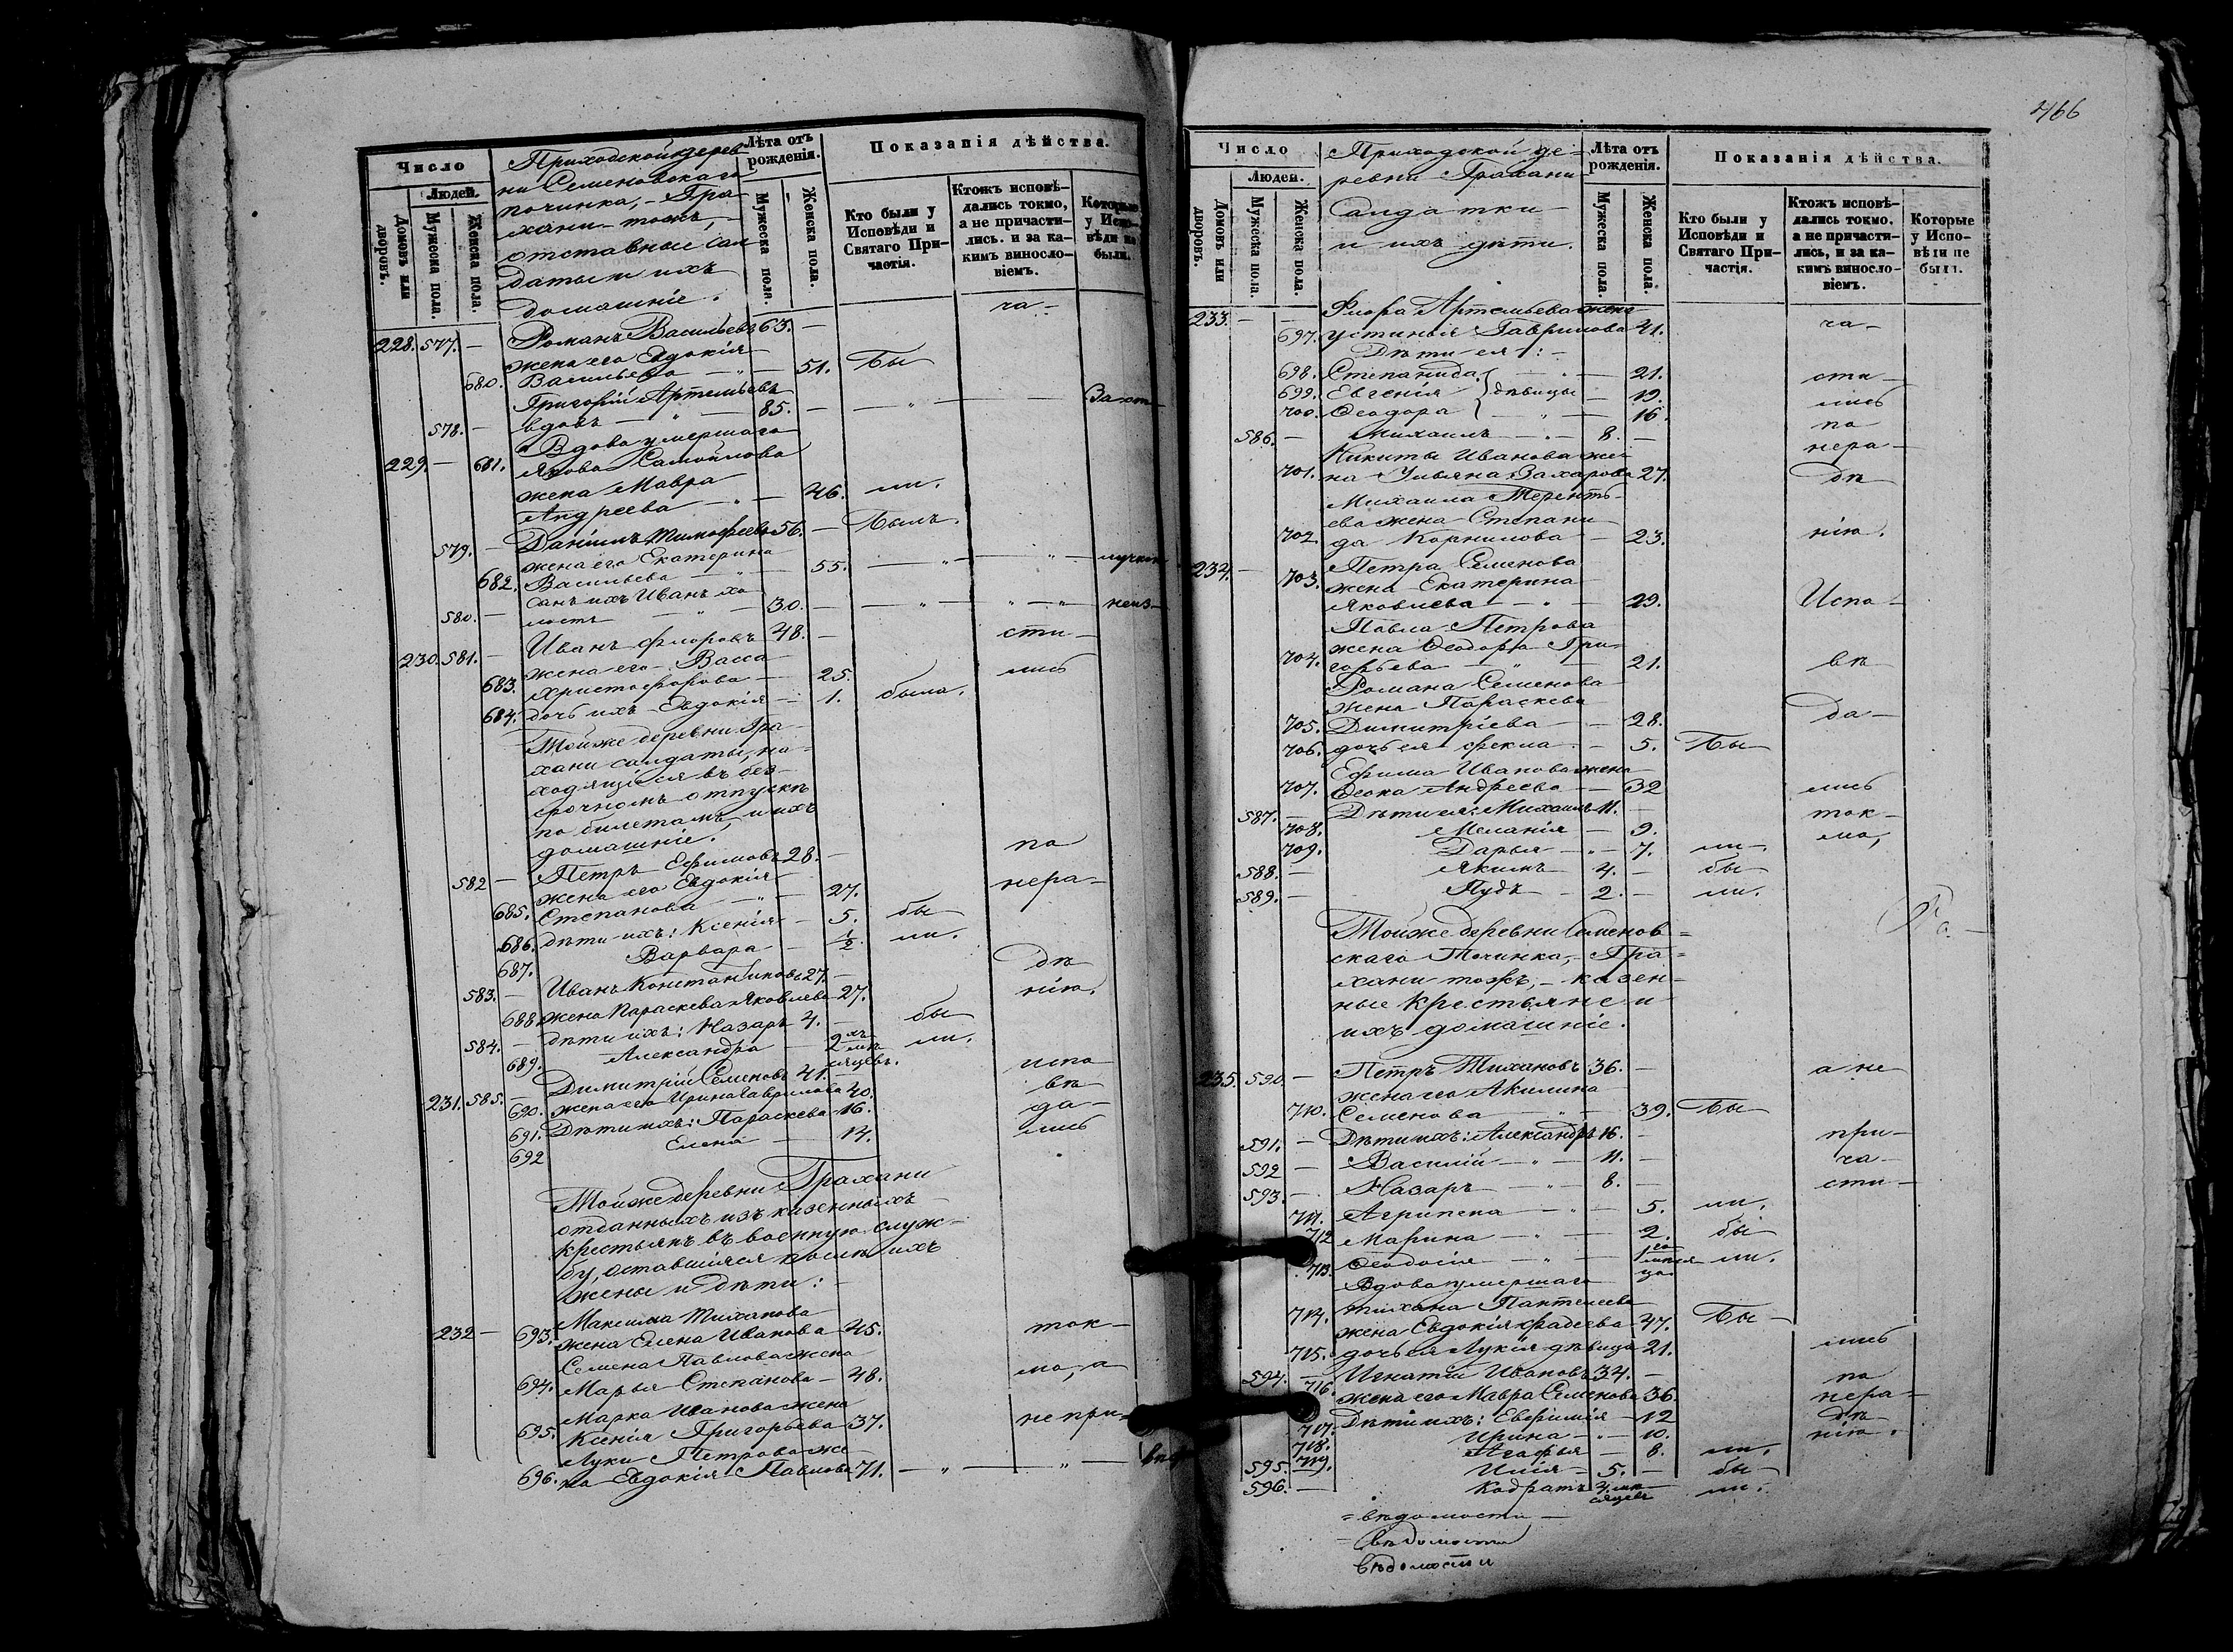 Число
Людей.
Домовъ или дворовъ.
Мужеска пола.
Женска пола.
Приходской дерев
ни Семеновскаго
починка, - Гра-
хани-тожъ, -
отставные сал
даты и ихъ
домашніе.
Лѣта отъ рожденія.
Мужеска пола.
Женска пола.
Показанія дѣйства.
Кто были у Исповѣди и Святаго Причастія.
Ктожъ исповѣдались токмо, а не причастились. и за какимъ винословіемъ.
Которые у Исповѣди не были.
ча-
228. 577. - Романъ Васильевъ 63. -
жена его Евдокія
680. Васильева - " - 51. Бы
Григорій Артемьевъ
578. - вдовъ - " - 85. - - " -
229. - 681. Вдова умершаго
Якова Самойлова
жена Мавра
Андреева - " - 46. ли.
579. - Даніилъ Тимофеевъ 56. - Былъ.
жена его Екатерина
682. Васильева - " - 55. - " - " -
сынъ ихъ Иванъ хо
580. - лостъ - " - 30. - - " - " - "
230. 581. - Иванъ Флоровъ 48. - сти-
жена его Васса
683. Христофорова - 25. лись
684. дочь ихъ Евдокія - 1. была.
Тойже деревни Гра-
хани салдаты, на-
ходящіеся въ без-
срочномъ отпускѣ
по билетамъ, и ихъ
домашніе.
582 - Петръ Ефимовъ 28. - по
жена его Евдокія
685. Степанова - " - 27. нера-
686. дѣти ихъ: Ксенія - 5. бы
687. Варвара - 1/2. ли.
583. - Иванъ Константиновъ 27. - дѣ
688. жена Параскева Яковлева 27. нію.
584. - дѣти ихъ: Назаръ 4. - бы
689. Александра - 2хъ мѣсяцевъ. ли.
231. 585. - Димитрій Семеновъ 41. - испо
690. жена его Ирина Гаврилова 40. вѣ
691. Дѣти ихъ: Параскева 16. да-
692 Елена - 14. лись
Тойже деревни Грахани
отданныхъ изъ казенныхъ
крестьянъ въ военную служ-
бу, оставшіяся послѣ ихъ
жены и дѣти: -
Максима Тиханова
232 - 693. жена Елена Иванова - 45. ток-
Семена Павлова жена
694. Марья Степанова - 48. мо, а
Марка Иванова жена
695. Ксенія Григорьева 37. не при-
Луки Петрова же
696. на Евдокія Павлова 71. - " - " -
466
Число
Людей.
Домовъ или дворовъ.
Мужеска пола.
Женска пола.
Приходской де-
ревни Грахани
Салдатки
и ихъ дѣти.
Лѣта отъ рожденія.
Мужеска пола.
Женска пола.
Показанія дѣйства.
Кто были у Исповѣди и Святаго Причастія.
Ктожъ исповѣдались токмо. а не причастились, и за какимъ винословіемъ.
Которые у Исповѣди не были.
233. - - Флора Артемьева жена
697. Устинья Гаврилова 41. ча-
Дѣти ея: -
698. Степанида - " - 21. сти-
699. Евгенія } дѣвицы - 19. лись
700. Ѳеодора - " - 16. по
586. - Михаилъ - " - 8. - нера-
Никиты Иванова же-
701. на Ульяна Захарова 27. дѣ
Михаила Терентъ-
ева жена Степани-
702. да Корнилова - 23. нію.
234. - Петра Семенова
703. жена Екатерина
Яковлева - " - 29. Испо-
Павла Петрова
жена Ѳеодора Гри-
704. горьева - " - 21. вѣ
Романа Семенова
жена Параскева
705. Димитріева - 28. да-
706. дочь ея Фекла - 5. Бы
Ефима Иванова жена
707. Ѳеока Андреева - 32 лись
587. - Дѣти ея: Михаилъ 11. - ток-
708. Меланія - 9. мо,
709. Дарья - " - 7. ли-
588. - Якимъ - 4. - бы
589. - Пудъ - 2. - ли.
Тойже деревни Семенов-
скаго Починка, - Гра-
хани тожъ, - казен-
ные крестьяне и
ихъ домашніе.
235. 590. - Петръ Тихановъ 36. - а не
жена его Акилина
710. Семенова - " - 39. Бы
591. - Дѣти ихъ: Александръ 16. - при-
592 - Василій - " - 11. - ча-
593. - Назаръ - " - 8. - сти-
711. Агрипена - " - 5. ли.
712 Марина - " - 2. бы
713. Ѳеодосія - " - 1го мѣсяца ли.
Вдова умершаго
714. Тихана Пантелеева
жена Евдокія Фадеева 47. Бы
715. дочь ея Лукія дѣвица 21. лись
594. - Игнатій Ивановъ 34. - по
716. жена его Мавра Семенова 36. нера-
717. Дѣти ихъ: Евфимія - 12 дѣ
718. Ирина - " - 10. нію.
719. Агафья - 8. ли.
595. - Илія - 5. - бы
596. - Кодратъ 4. мѣсяцевъ ли.
= вѣдомости -
- вѣдомости
вѣдомости